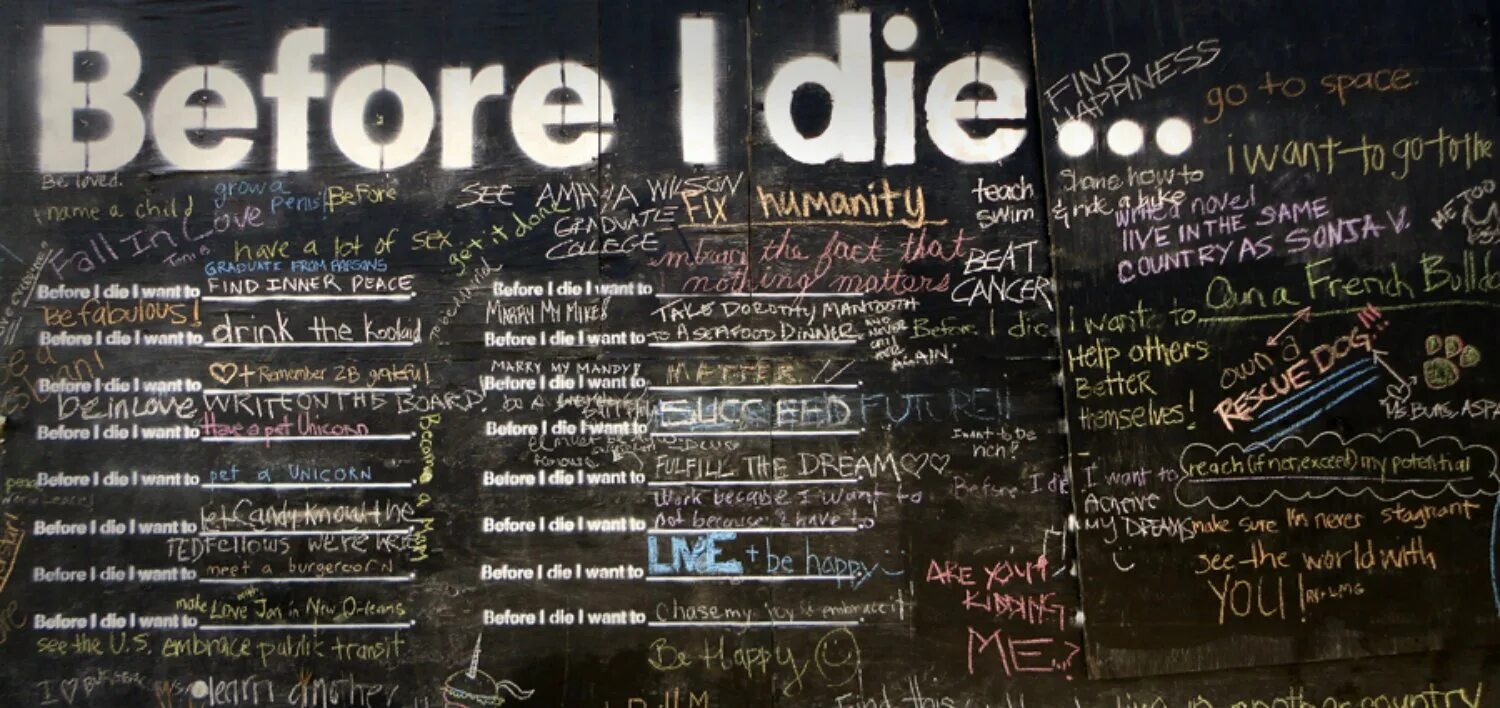 Before I die...
FIND
HAPPINESS
go to space.
i want to go to the
Be loved.
name a child
grow a
penis!
Before
Fall In Love
have a lot of sex
get it done
SEE AMAYA WILSON
GRADUATE
COLLEGE
FIX humanity
teach
swim
Share how to
& ride a bike
write a novel
LIVE IN THE SAME
COUNTRY AS SONJA V.
ME TOO
GRADUATE FROM PARSONS
Before I die I want to FIND INNER PEACE
Be fabulous!
Before I die I want to drink the koolaid
Before I die I want to ♡ + Remember 2B grateful
be in love WRITE ON THIS BOARD!
Before I die I want to Have a pet Unicorn
Before I die I want to pet a UNICORN
Become a Mom
Before I die I want to let Candy know the
TED Fellows were here
Before I die I want to meet a burgercorn
make
Before I die I want to Love Jon in New Orleans
see the U.S. embrace public transit
I ♡
learn another
embrace the fact that
Before I die I want to nothing matters
BEAT
CANCER
MARRY MY MIKE!
TAKE DOROTHY MANTOOTH
Before I die I want to TO A SEAFOOD DINNER
AND
NEVER
CALL
HER
AGAIN.
Before I die
MARRY MY MANDY!
Before I die I want to MATTER!!
Before I die I want to SUCCEED
FUTURE!!
I want to be
rich?
Before I die I want to FULFILL THE DREAM ♡♡
Before I die
work because I want to
Before I die I want to not because I have to
Before I die I want to LIVE + be happy
ARE YOU
KIDDING
ME..?
Before I die I want to chase my joy & embrace it!
Be Happy
Find this
another country
I want to Own a French Bulldo
Help others
Better
themselves!
own a
RESCUE DOG!!!
Ms Buns, ASPA
I want to reach (if not, exceed) my potential
Achieve
MY DREAMS
make sure I'm never stagnant
see the world with
YOU!